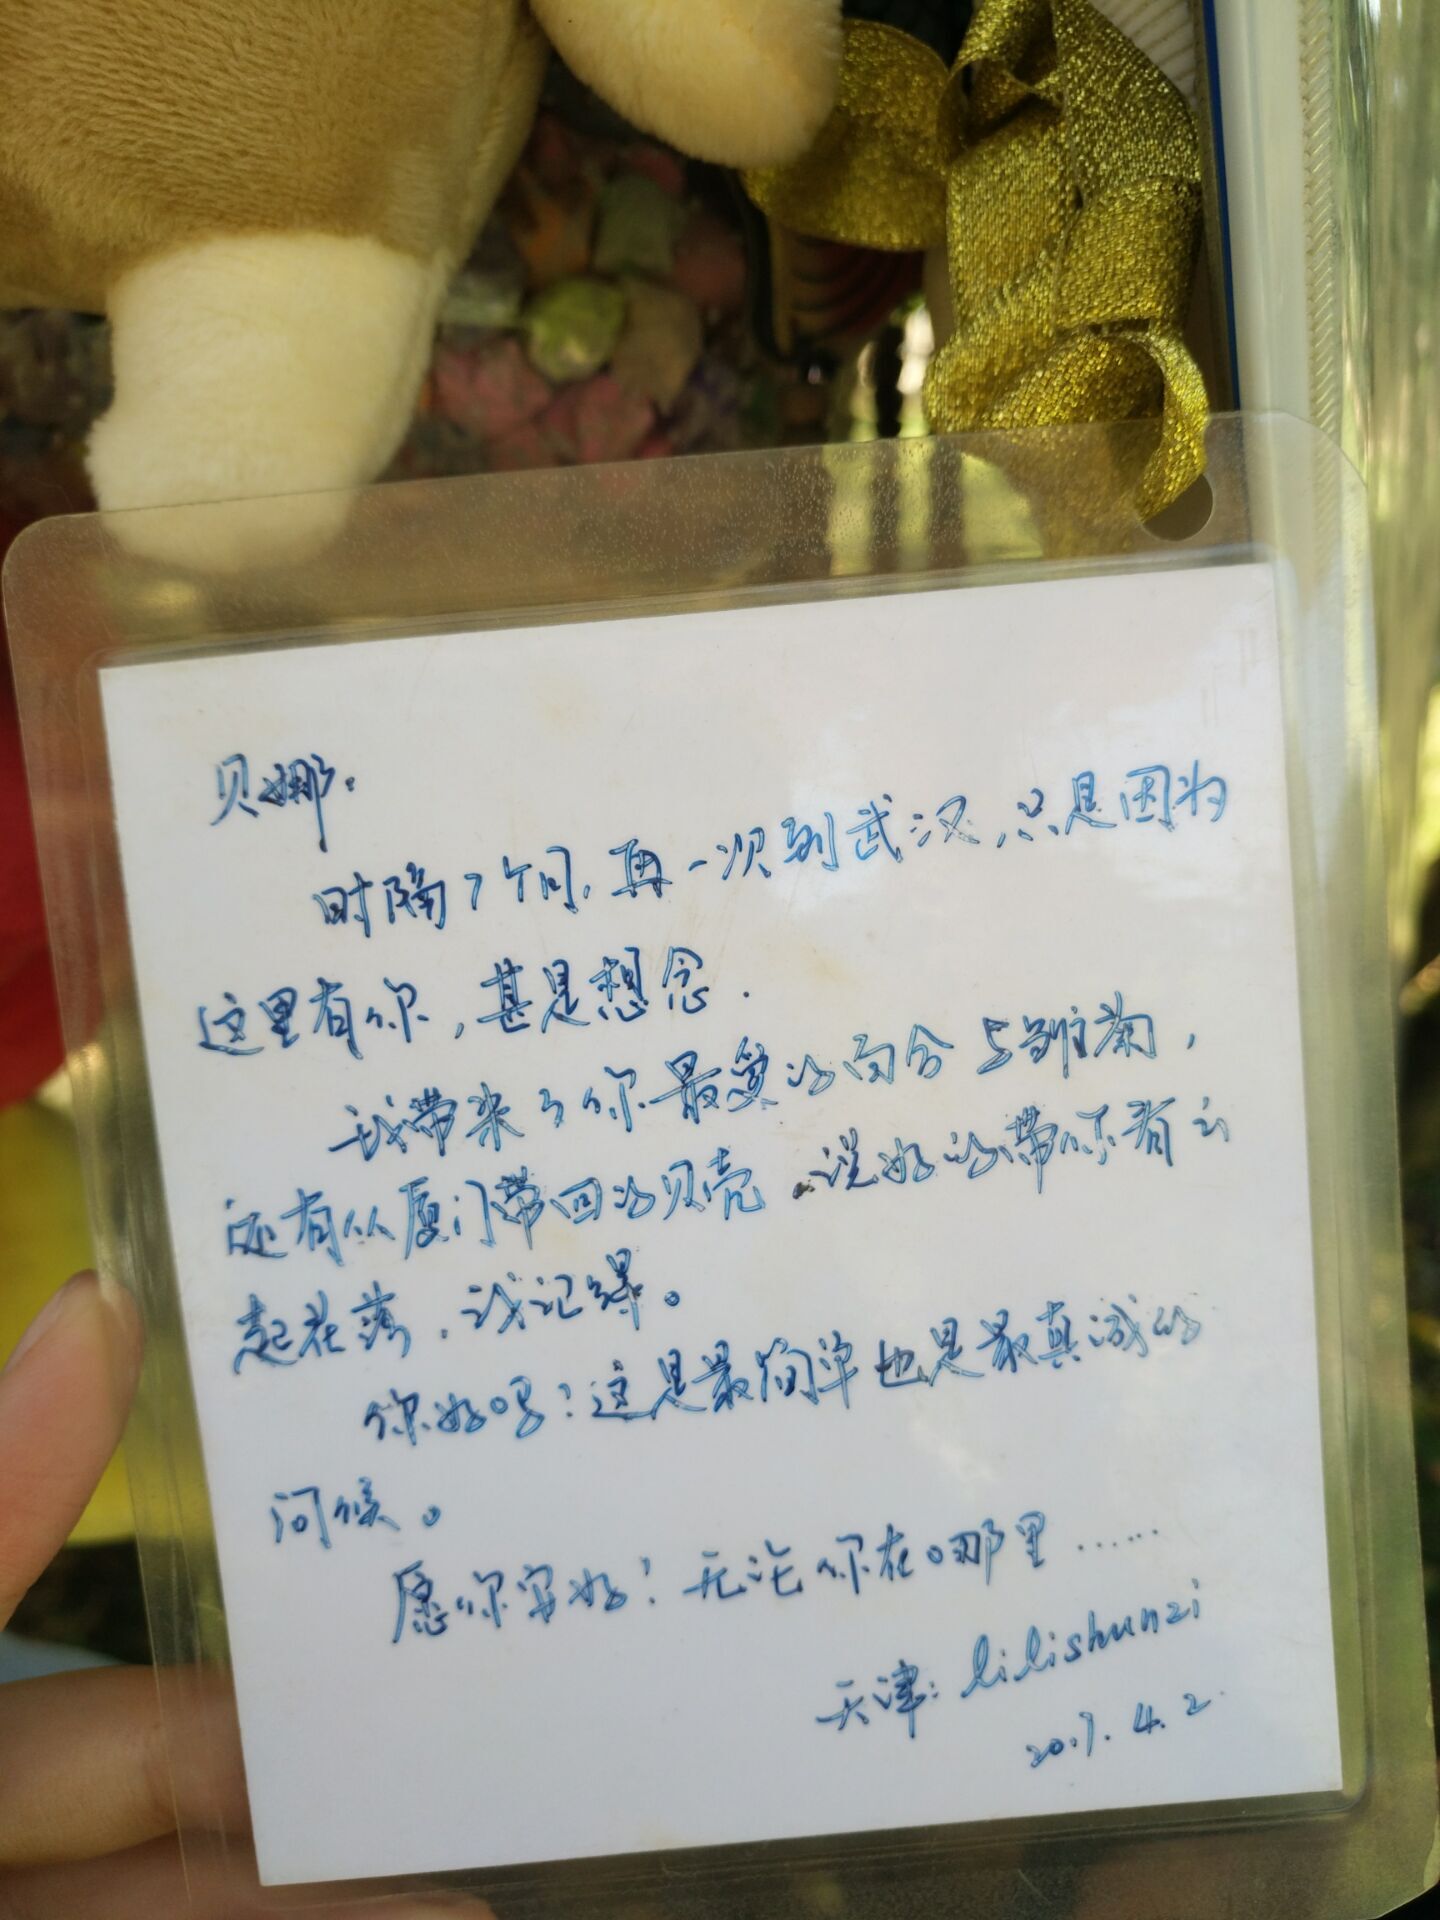 贝娜：
时隔7个月，再一次到武汉，只是因为
这里有你，甚是想念.
我带来了你最爱的百合与雏菊，
还有从厦门带回的贝壳，说好的带你看云
起花落，我记得。
你好吗？这是最简单也是最真诚的
问候。
愿你安好！无论你在哪里……
天津：lilishunzi
2017.4.2.